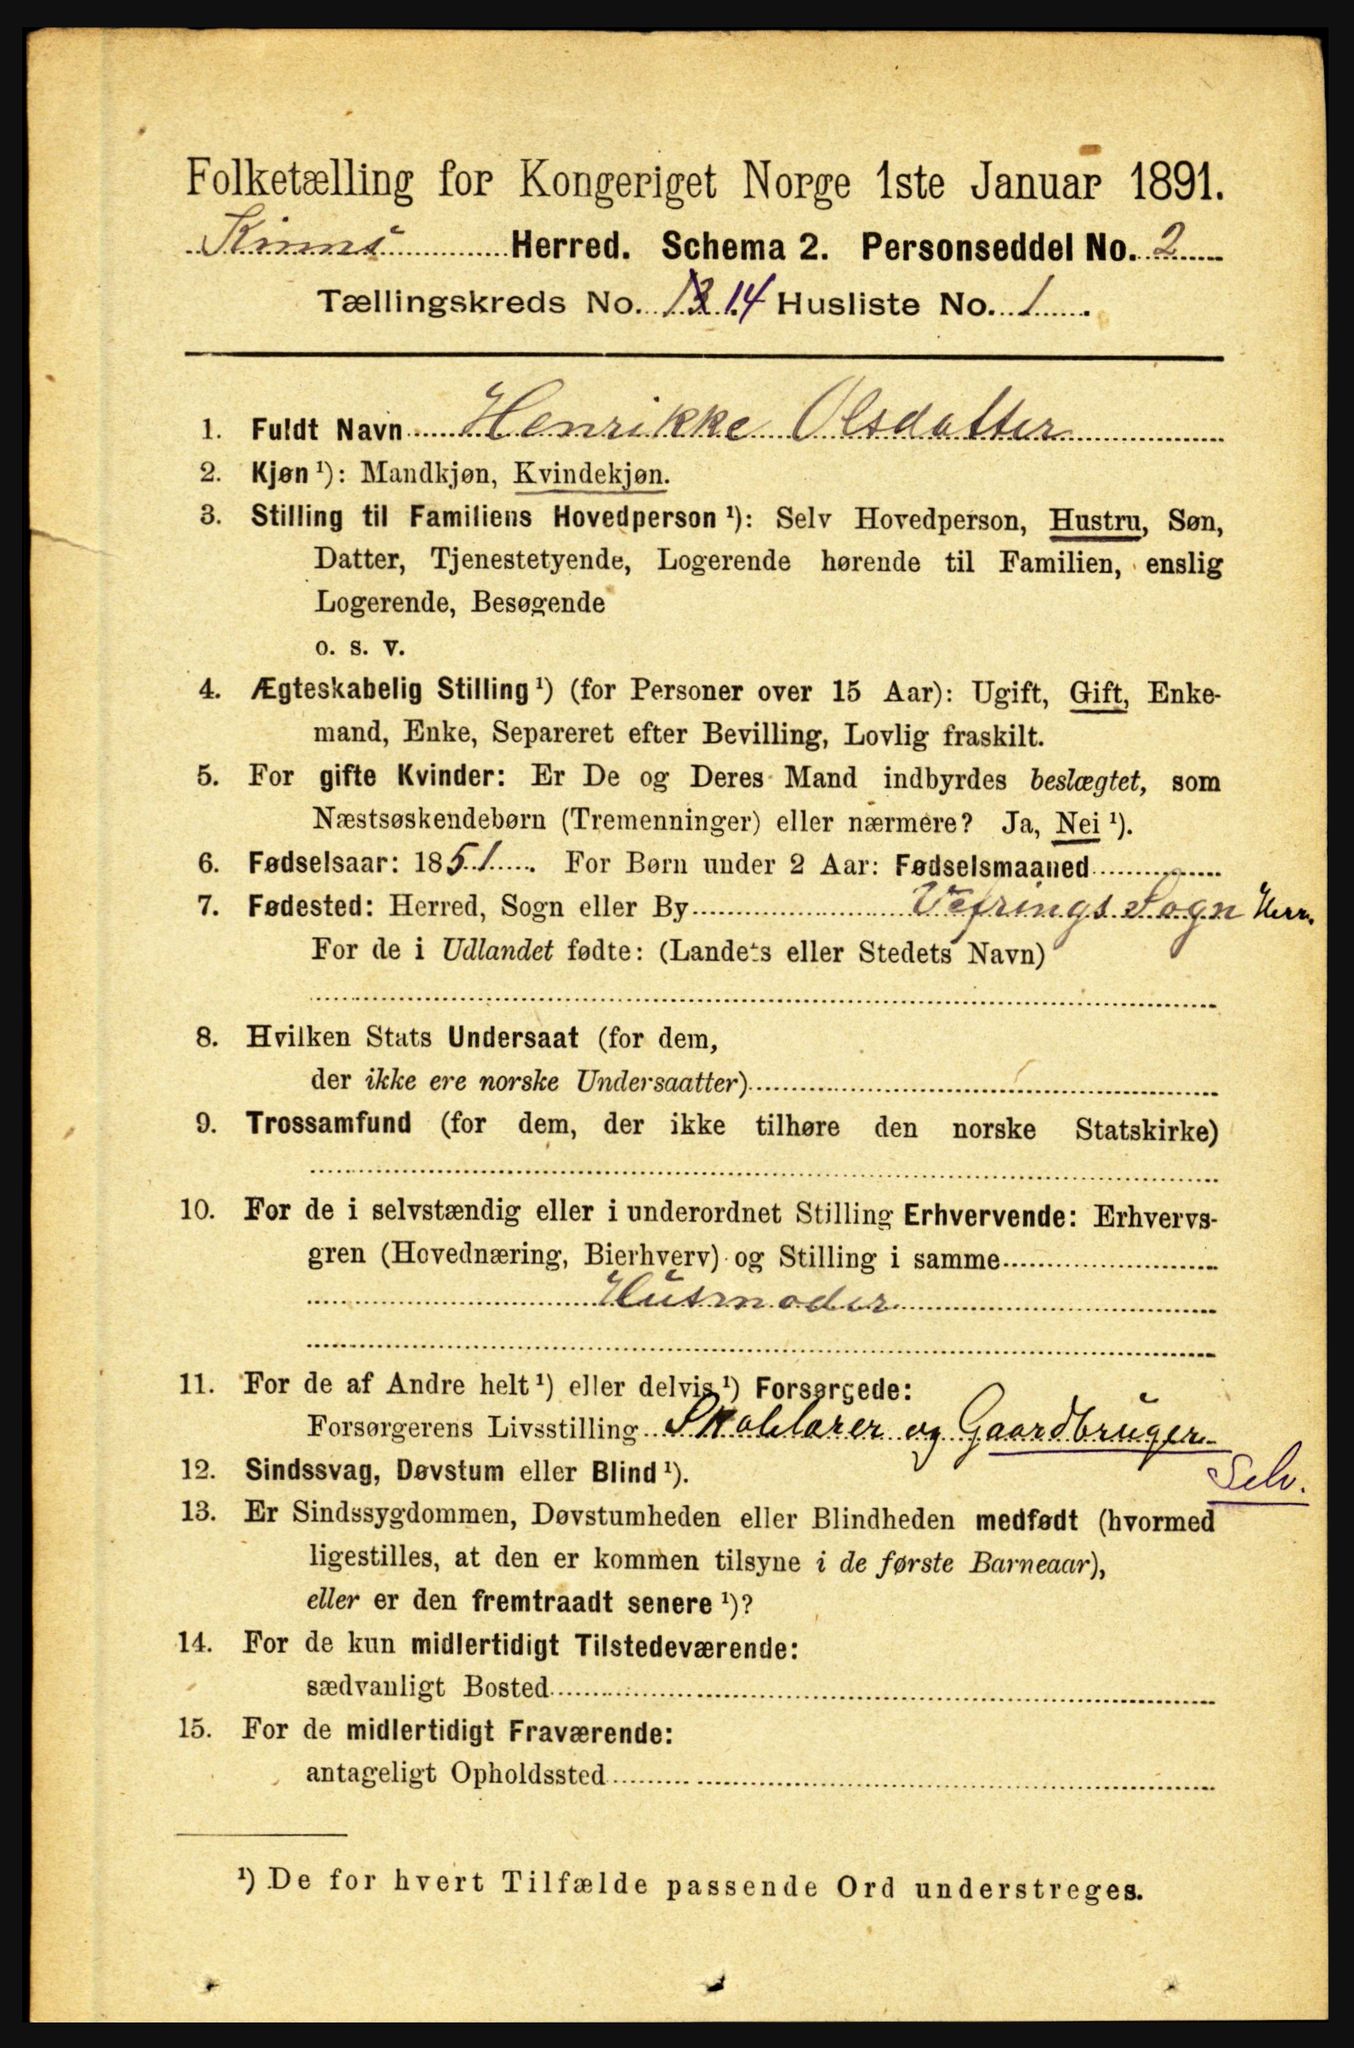 Folketælling for Kongeriget Norge 1ste Januar 1891.
Kinns Herred. Schema 2. Personseddel No. 2
Tællingskreds No. 13 14 Husliste No. 1.
1. Fuldt Navn Henrikke Olsdatter
2. Kjøn ¹): Mandkjøn, Kvindekjøn.
3. Stilling til Familiens Hovedperson ¹): Selv Hovedperson, Hustru, Søn,
Datter, Tjenestetyende, Logerende hørende til Familien, enslig
Logerende, Besøgende
o. s. v.
4. Ægteskabelig Stilling ¹) (for Personer over 15 Aar): Ugift, Gift, Enke-
mand, Enke, Separeret efter Bevilling, Lovlig fraskilt.
5. For gifte Kvinder: Er De og Deres Mand indbyrdes beslægtet, som
Næstsøskendebørn (Tremenninger) eller nærmere? Ja, Nei ¹).
6. Fødselsaar: 1851. For Børn under 2 Aar: Fødselsmaaned
7. Fødested: Herred, Sogn eller By Vefrings Sogn Herr.
For de i Udlandet fødte: (Landets eller Stedets Navn)
8. Hvilken Stats Undersaat (for dem,
der ikke ere norske Undersaatter)
9. Trossamfund (for dem, der ikke tilhøre den norske Statskirke)
10. For de i selvstændig eller i underordnet Stilling Erhvervende: Erhvervs-
gren (Hovednæring, Bierhverv) og Stilling i samme
Husmoder
11. For de af Andre helt ¹) eller delvis ¹) Forsørgede:
Forsørgerens Livsstilling Skolelærer og Gaardbruger
Selv.
12. Sindssvag, Døvstum eller Blind ¹).
13. Er Sindssygdommen, Døvstumheden eller Blindheden medfødt (hvormed
ligestilles, at den er kommen tilsyne i de første Barneaar),
eller er den fremtraadt senere ¹)?
14. For de kun midlertidigt Tilstedeværende:
sædvanligt Bosted
15. For de midlertidigt Fraværende:
antageligt Opholdssted
¹) De for hvert Tilfælde passende Ord understreges.